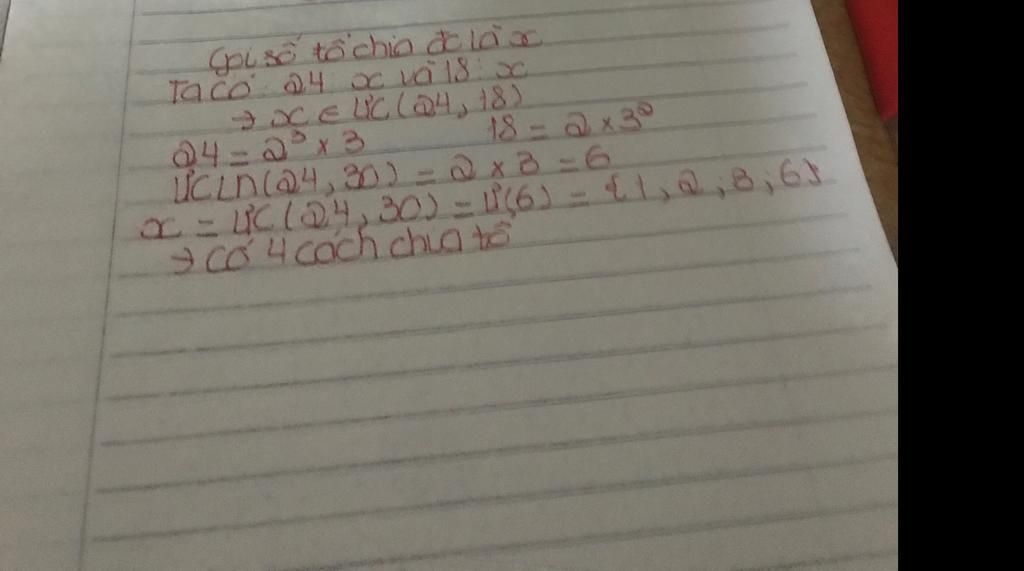 Gọi số tổ chia đc là x
Ta có: 24 x và 18: x
→ x ∈ ƯC (24, 18)
24 = 2³ × 3 18 = 2 × 3²
ƯCLN (24, 30) = 2 × 3 = 6
x = ƯC (24, 30) = Ư(6) = {1, 2; 3; 6}
→ Có 4 cách chia tổ